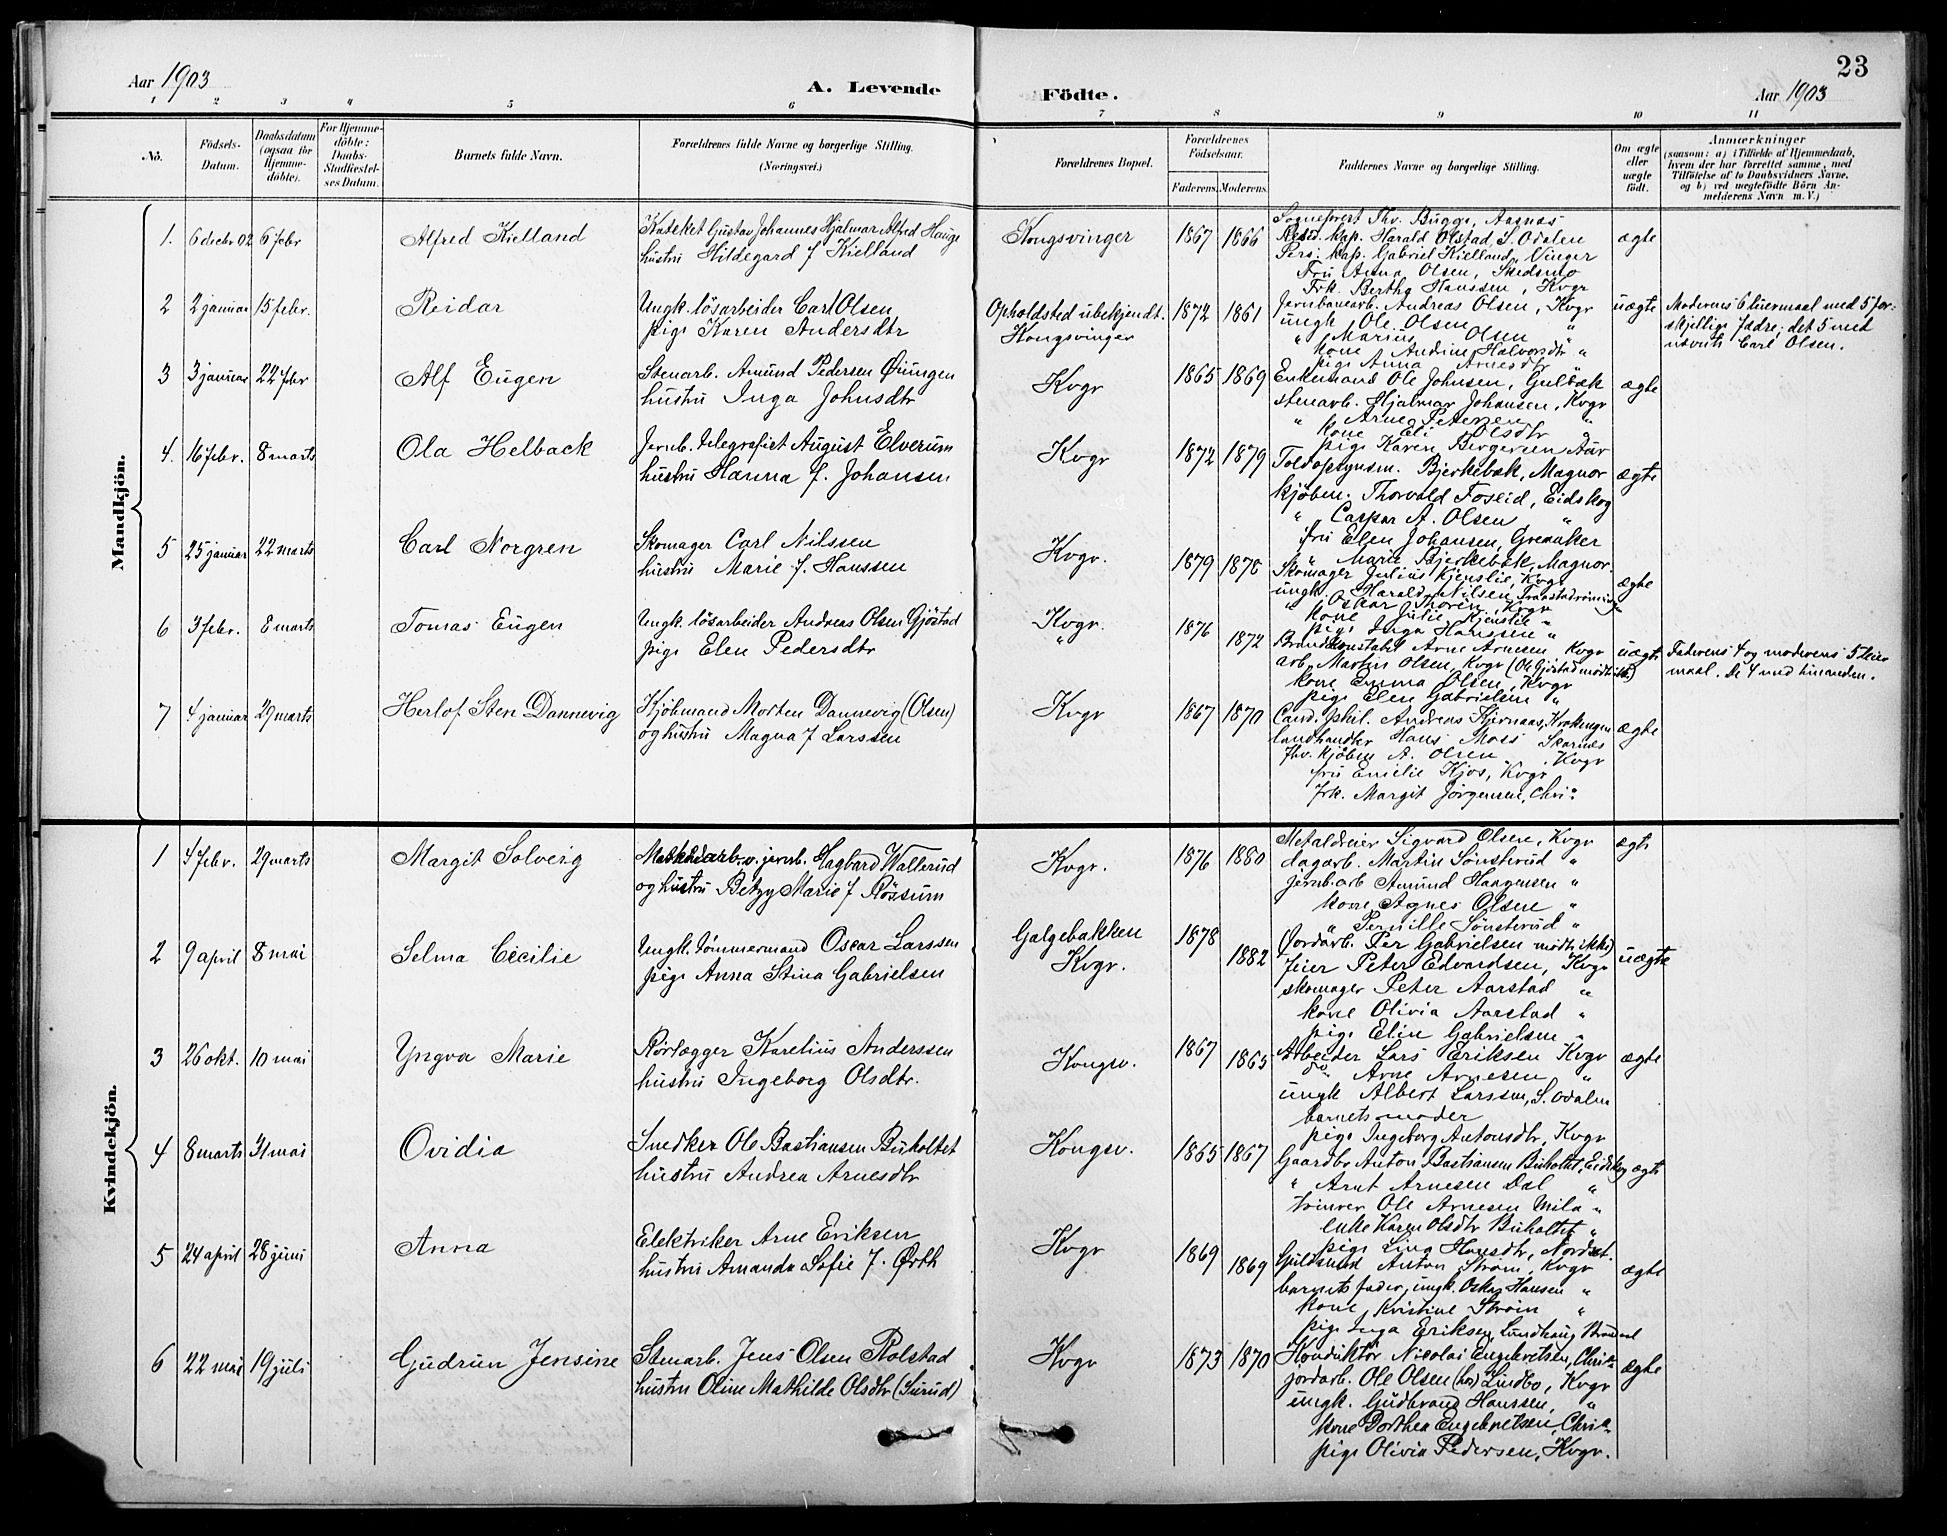 23
Aar 1903
A. Levende
Födte.
Aar 1903
1 2 3 4 5 6 7 8 9 10 11
No.
Födsels-
Datum.
Daabsdatum
(ogsaa for
Hjemme-
döbte).
For Hjemme-
döbte:
Daabs-
Stadfæstel-
ses Datum.
Barnets fulde Navn.
Forældrenes fulde Navne og borgerlige Stilling.
(Næringsvei.)
Forældrenes Bopæl.
Forældrenes
Födselsaar.
Faderens. Moderens.
Faddernes Navne og borgerlige Stilling.
Om ægte
eller
uægte
födt.
Anmærkninger
(saasom: a) i Tilfælde af Hjemmedaab,
hvem der har forrettet samme, med
Tilföielse af to Daabsvidners Navne,
og b) ved uægtefödte Börn An-
melderens Navn m. V.)
Mandkjön.
1. 6 decbr 02 6 febr
Alfred Kielland
Kateket Gustav Johannes Hjalmar Alfred Hauge
hustru Hildegard f Kielland
Kongsvinger
1867 1866
Sogneprest Thv. Bugge, Aasnes
Resid. kap. Harald Olstad, S. Odalen
Pers. kap. Gabriel Kielland, Vinger
Fru Anna Olsen, Skedsmo
Frk. Bertha Hanssen, Kvgr
ægte
2 2 januar 15 febr.
Reidar
Ungk. lösarbeider Carl Olsen
pige Karen Andersdtr
Opholdsted ubekjendt.
Kongsvinger
1872 1861
Jernbanearb. Andreas Olsen, Kvgr
ungk Ole Olsen "
" Marius Olsen "
kone Andrine Halvorsdtr "
pige Anna Arnesdtr "
uægte
Moderens 6 leiermaal med 5 for-
skjellige fædre; det 5 med
nævnte Carl Olsen.
3 3 januar 22 febr
Alf Eugen
Stenarb. Amund Pedersen Öiungen
hustru Inga Johnsdtr
Kvgr
1865 1869
Enkemand Ole Johnsen, Gulbæk
stenarb. Hjalmar Johansen, Kvgr
" Arne Petersen "
kone Eli Olsdtr "
pige Karen Bergersen Aar
ægte
4. 16 febr. 8 marts
Ola Helback
Jernb. telegrafist August Elverum
hustru Hanna f. Johansen
Kvgr
1872 1879
Toldopsynsm. Bjerkebæk, Magnor
kjöbm. Thorvald Fosseid, Eidskog
" Caspar A. Olsen "
fru Elen Johansen, Greaaker
" Marie Bjerkebæk, Magnor.
ægte
5 25 januar 22 marts
Carl Norgren
Skomager Carl Nilssen
hustru Marie f. Hanssen
Kvgr.
1879 1878
Skomager Julius Kjenslie, Kvgr
ungk. Harald Nilsen
" Oskar Thoren, Kvgr
kone Julie Kjenslie "
pige Inga Hanssen "
ægte
6 3 febr. 8 marts
Tomas Eugen
Ungk. lösarbeider Andreas Olsen Gjöstad
pige Elen Pedersdtr
Kvgr.
"
1876 1872
Brandkonstabel Arne Arnesen Kvgr
arb. Martin Olsen, Kvgr (Ole Gjöstad mödte ikke)
kone Emma Olsen, Kvgr
pige Elen Gabrielsen "
uægte
Faderens 4 og moderens 5 leier
maal. De 4 med hinanden.
7 4 januar 29 marts
Herlof Sten Dannevig
Kjöbmand Morten Dannevig (Olsen)
og hustru Magna f Larssen
Kvgr
1867 1870
Cand. phil. Andreas Kjernaas,
landhandler Hans Moss Skarnes
Fhv. kjöbm A. Olsen, Kvgr
fru Emilie Kjos, Kvgr
frk. Margit Jörgensen, Chri:
ægte
Kvindekjön.
1 4 febr. 29 marts
Margit Solveig
v. jernb. Hagbard Wallerud
og hustru Betzy Marie f Rössum
Kvgr.
1876 1880
Metaldreier Sigvard Olsen, Kvgr
dagarb. Martin Sönsterud "
jernb.arb Amund Haagensen "
kone Agnes Olsen "
" Pernille Sönsterud "
ægte
2 9 april 8 mai
Selma Cecilie
Ungk. tömmermand Oscar Larssen
pige Anna Stina Gabrielsen
Galgebakken
Kvgr.
1878 1882
Jordarb. Per Gabrielsen mödte ikke)
feier Peter Edvardsen, Kvgr
skomager Peter Aarstad "
kone Olivia Aarstad "
pige Elin Gabrielsen "
uægte
3 26 okt. 10 mai
Yngva Marie
Rörlægger Karelius Anderssen
hustru Ingeborg Olsdtr.
Kongsv.
1867 1865
Arbeider Lars Eriksen Kvgr
do Arne Arnesen "
ungk Albert Larssen, S. Odalen
barnets moder
pige Ingeborg Antonsdtr, Kvgr
ægte
4 8 marts 31 mai
Ovidia
Snedker Ole Bastiansen Buholtet
hustru Andrea Arnesdtr
Kongsv.
1865 1867
Gaardbr Anton Bastiansen Buholtet, Eidskog
" Arnt Arnesen Dal "
tömrer Ole Arnesen Mila "
enke Karen Olsdtr Buholtet "
pige Lina Hansdtr, Nordset.
ægte
5 24 april 28 juni
Anna
Elektriker Arne Eriksen
hustru Amanda Sofie f. Örth
Kvgr
1869 1869
Guldsmed Anton Ström, Kvgr
barnets fader, ungk. Oskar Hansen "
kone Kristine Ström "
pige Inga Eriksen, Lundhaug
ægte
6 22 mai 19 juli
Gudrun Jensine
Stenarb. Jens Olsen Rolstad
hustru Oline Mathilde Olsdtr (Surud)
Kvgr
1873 1870
Konduktör Nicolai Engebretsen, Chri:a
jordarb. Ole Olsen Lindbo, Kvgr
ungk. Gudbrand Hanssen, "
kone Dorthea Engebretsen, Chri:a
pige Olivia Pedersen, Kvgr.
ægte